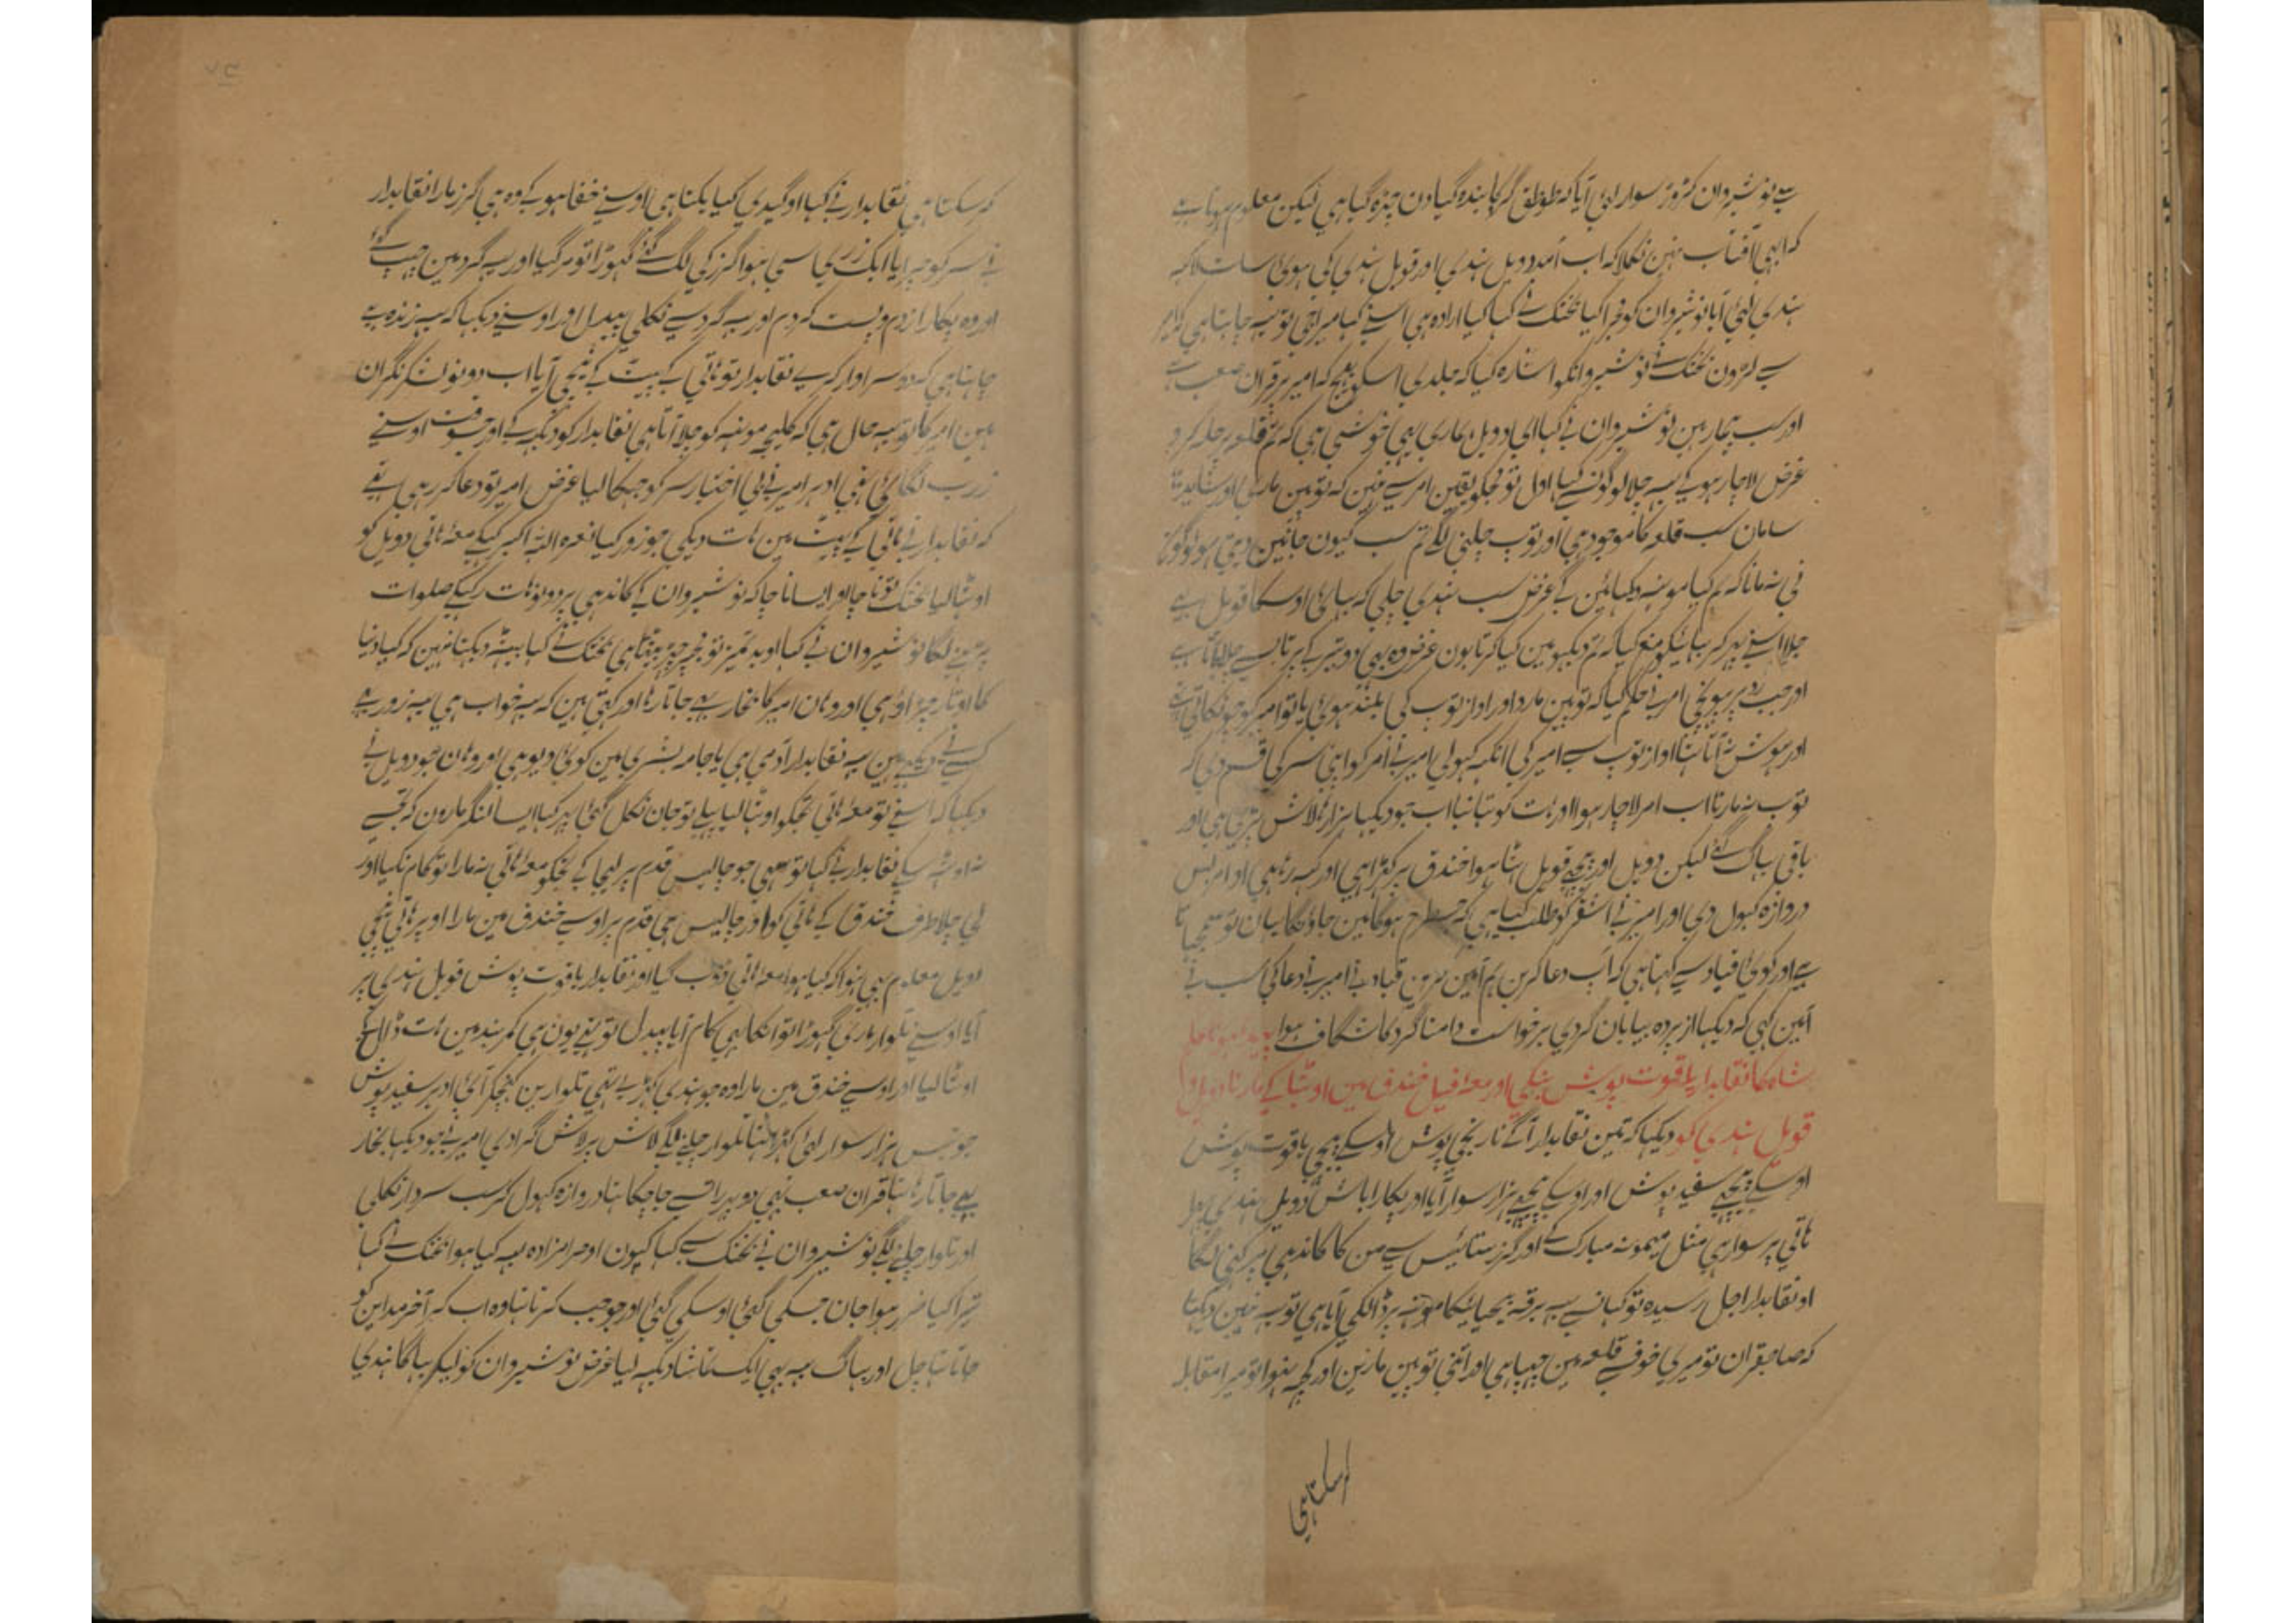 ہے نوشیروان کڑوڑ سوار لئی آیا کہ طوطق گر کا بندہ گیا دن چڑہ گیا ہی لیکن معلوم ہوتا ہے
کہ ابہی آفتاب نہین نکلا کہ اب آمد دویل ہندی اور قویل ہندی کی ہوئی سات لاکہہ
ہندی لئی آیا نوشیروان کو مجرا کیا بختک نے کہا کیا ارادہ ہی اسنے کہا میرا جی تو یہ چاہتا ہی کہ امیر
سے لڑون بختک نے نوشیروانکو اشارہ کیا کہ جلدی اسکو بہیج کہ امیر پر قران صعب ہے
اور سب بیمار ہین نوشیروان نے کہا ای دویل ہماری یہی خوشی ہی کہ تم قلعہ پر حملہ کرو
غرض لاچار ہوکے یہ چلا لوگونے کہا اول تو ہمکو یقین امر سے نہین کہ توپین ماری اور شاید
سامان سب قلعہ کا موجود ہی اور توپ چلنی لگے تم سب کیون جانین دیتی ہو
نی نہ مانا کہ ہم کیا مونہہ دیکہائین گے غرض سب ہندی چلی کہ بہائی اوسکا قویل ہے
چلا اسنے پہر کر بہائیکو منع کیا کہ تم دیکہو مین کیا کرتا ہون غرض وہ بہی دو تیر کے پرتاب سے چلا آتا ہے
اور جب زد پر پہونچی امر نے حکم کیا کہ توپین مارو اور آواز توپ کی بلند ہوئی یا تو امیر کو
اور ہوش نہ آتا تہا آواز توپ سے امیر کی آنکہہ کہولی امیر نے امر کو اپنی سر کی قسم دی کہ
توپ نہ مارنا اب امر لاچار ہوا اور ہات کو تہانبا اب جو دیکہا ہزارہا لاش پڑی ہی اور
باقی بہاگ گئے لیکن دویل اور پیچہے قویل ہٹا ہوا خندق پر کہڑا ہی اور کہہ رہا ہی
دروازہ کہول دی اور امیر نے اشقر کو طلب کیا ہی کہ جسطرح ہوگا مین جاؤنگا یہان تو
ہے اور کوئی قباد سے کہتا ہی کہ آپ دعا کرین ہم آمین کہین قباد نے امیر نے دعا کی سب نے
آمین کہی کہ دیکہا از پردہ بیابان گردی برخواست دامنا گرد کا شگاف ہوا
شاہ کا نقابدار یاقوت پوش بنکی اور معہ فیل خندق مین اوٹہا کے مارنا دویل
قویل ہندی کو دیکہا کہ تین نقابدار آگے نارنجی پوش اوسکے پیچہی یاقوت پوش
اوسکے پیچہے سفید پوش اور اوسکے پیچہے ہزار سوار آیا اور پکارا باش دویل ہندی
ہاتی پر سوار ہی مثل میمونہ مبارک کے اور گرز ستائیس سے من کا کاندہی پر کہنی لگا
او نقابدار اجل رسیدہ تو کہانسے یہ برقہ بیحیائیکا مونہہ پر ڈالکی آیا ہی تو یہ نہین دیکہتا
کہ صاحبقران تو میری خوف سے قلعہ مین چہپا ہی اور اتنی توپین مارین اور کچہہ نہوا تو میرا مقابلہ
کر سکتا ہی
کر سکتا ہی نقابدار نے کہا او گیدی کیا بکتا ہی اوسنے خفا ہو کے وہ ہی گرز مارا نقابدار
نے سر کو چورایا ایک زری سی ہوا گرز کی لگ گئے گہوڑا تو مر گیا اور یہ گرد مین چہپ گئے
اور وہ پکارا زدم و پست کردم اور یہ گرد سے نکلی پیدل اور اوسنے دیکہا کہ یہ زندہ ہے
چاہتا ہی کہ دوسرا وار کرے نقابدار تو ہاتی کے پیٹ کے نیچی آیا اب دونو لشکر نگران
ہین امیر کا تو یہ حال ہی کہ کلیجہ مونہہ کو چلا آتا ہی نقابدار کو دیکہہ کے اور جسوقت اوسنے
زرب لگائی تہی ادہر امیر نے بی اختیار سر کو جہکا لیا غرض امیر تو دعا کر رہی تہے
کہ نقابدار نے ہاتی کے پیٹ مین ہات دیکی جو زور کیا نعرہ اللہ اکبر کرکے معہ ہاتی دویل کو
اوٹہا لیا بختک تو ناچا اور ایسا ناچا کہ نوشیروان کے کاندہی پر دونو ہات رکہکے صلوات
پڑہنے لگا نوشیروان نے کہا او بدتمیز تو مجہپر چڑہ بیٹہا ہی بختک نے کہا بیٹہہ دیکہتا نہین کہ کیا دنیا
کا اوتار چڑاؤ ہی اور وہان امیر کا بخار بہے جاتا رہا اور کہتی ہین کہ یہ خواب ہی یہ زور ہے
کسے نے دیکہے ہین یہ نقابدار آدمی ہی یا جامہ بشری مین کوئی دیو ہی اور وہان جو دویل نے
دیکہا کہ اسنے تو معہ ہاتی مجہکو اوٹہا لیا پہلے تو جان نکل گئی پہر کہا ایسا لنگر مارون کہ مجہے
نہ اوٹہہ سکے نقابدار نے کہا تو سہی جو چالیس قدم پر لیجا کے تجکو معہ ہاتی نہ مارا تو کام نکیا اور
لی چلا طرف خندق کے ہاتی کو اور چالیس ہی قدم پر اوسے خندق مین مارا اوپر ہاتی نیچی
دویل معلوم بہی نہوا کہ کیا ہوا معہ ہاتی ڈوب گیا اور نقابدار یاقوت پوش قویل ہندی پر
آیا اوسنے تلوار ماری گہوڑا تو انکا بہی کام آیا پیدل تو تہے یون ہی کمربند مین ہات ڈالکے
اوٹہا لیا اور اوسے خندق مین مارا وہ جو ہندی کہڑے تہے تلوارین کہینچکر آئی ادہر سفید پوش
جو بیس ہزار سوار لئی کہڑا تہا تلوار چلنے لگے لاش پر لاش گرادی امیر نے جو دیکہا بخار
بہے جاتا رہا تہا قران صعب بہی دوپہر آقسے جا چکا تہا دروازہ کہول کر سب سردار نکلی
اور تلوار چلنے لگے نوشیروان نے بختک سے کہا کیون او حرامزادہ یہہ کیا ہوا بختک نے کہا
تیرا کیا ضرر ہوا جان جسکی گئی اوسکی گئی اور جو جب کرتا تہا وہ اب کر آخر مداین کو
جاتا تہا چل اور بہاگ یہ بہی ایک تماشا دیکہہ لیا غرض نوشیروان کو لیکر بہاگا ہندی